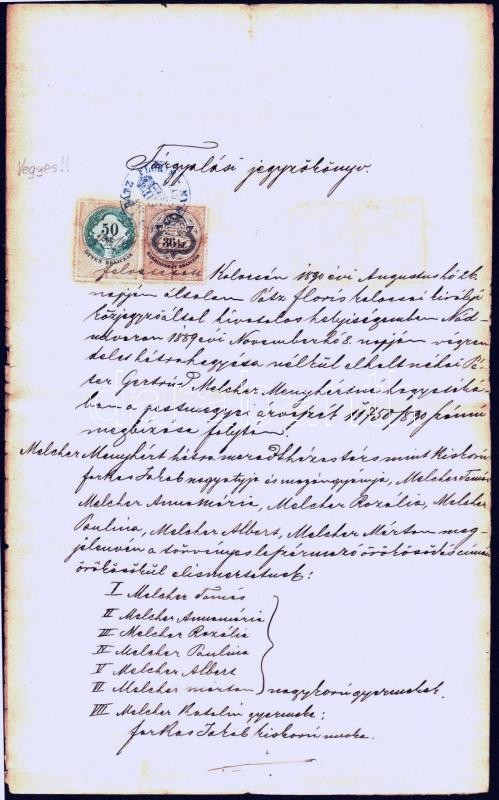 Tárgyalási jegyzőkönyv.
Vegyes!!
50
ÖTVEN KRAJCZÁR
36
felvétetett Kalocsán 1890 évi Augustus hó 26
napján általam Pátz Floris kalocsai királyi
közjegyző által hivatalos helyiségemben Nád-
udvaron 1889 évi November hó 8. napján végren
delet hátrahagyása nélkül elhalt néhai Pé-
ter Gertrúd Melcher Menyhértné hagyatéká-
ban a pestmegyei árvaszék 11750/890 számú
megbizása folytán.
Melcher Menyhért hátramaradt házastárs mint kiskorú
farkas Jakab nagyatyja és magángyámja, Melcher Tamás
Melcher Annamária, Melcher Rozália, Melcher
Paulina, Melcher Albert, Melcher Márton meg-
jelenvén a törvényes leszármazó örökösödés címén
örökösökül elismertetnek:
I Melcher Tamás
II Melcher Annamária
III Melcher Rozália
IV Melcher Paulina
V Melcher Albert
VI Melcher márton nagykorú gyermekek.
VII Melcher Katalin gyermeke;
farkas Jakab kiskorú unoka.